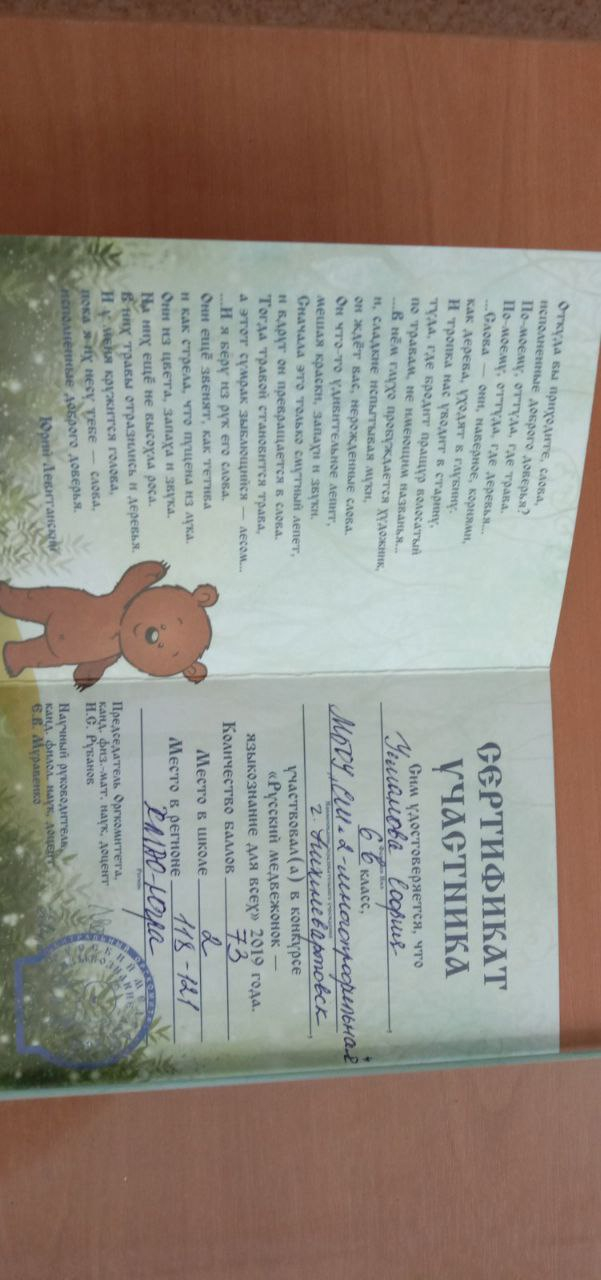 Откуда вы приходите, слова,
исполненные доброго доверья?
По-моему, оттуда, где трава.
По-моему, оттуда, где деревья...
...Слова — они, наверное, корнями,
как дерева, уходят в глубину.
И тропка нас уводит в старину,
туда, где бродит пращур волосатый
по травам, не имеющим названья...
...В нём глухо пробуждается художник,
и, сладкие испытывая муки,
он ждёт вас, нерождённые слова.
Он что-то удивительное лепит,
мешая краски, запахи и звуки.
Сначала это только смутный лепет,
и вдруг он превращается в слова.
Тогда травой становится трава,
а этот сумрак зыблющийся — лесом...
...И я беру из рук его слова.
Они ещё звенят, как тетива
и как стрела, что пущена из лука.
Они из цвета, запаха и звука.
На них ещё не высохла роса.
В них травы отразились и деревья.
И у меня кружится голова,
пока я их несу тебе — слова,
исполненные доброго доверья.
Юрий Левитанский
СЕРТИФИКАТ
УЧАСТНИКА
Сим удостоверяется, что
Усманова София
6 б класс,
МБОУ „СШ №2-многопрофильная"
г. Нижневартовск,
участвовал(а) в конкурсе
«Русский медвежонок —
языкознание для всех» 2019 года.
Количество баллов 73
Место в школе 2
Место в регионе 118-121
ХМАО-Югра
Регион
Председатель Оргкомитета,
канд. физ.-мат. наук, доцент
И.С. Рубанов
Научный руководитель,
канд. филол. наук, доцент
Е.В. Муравенко